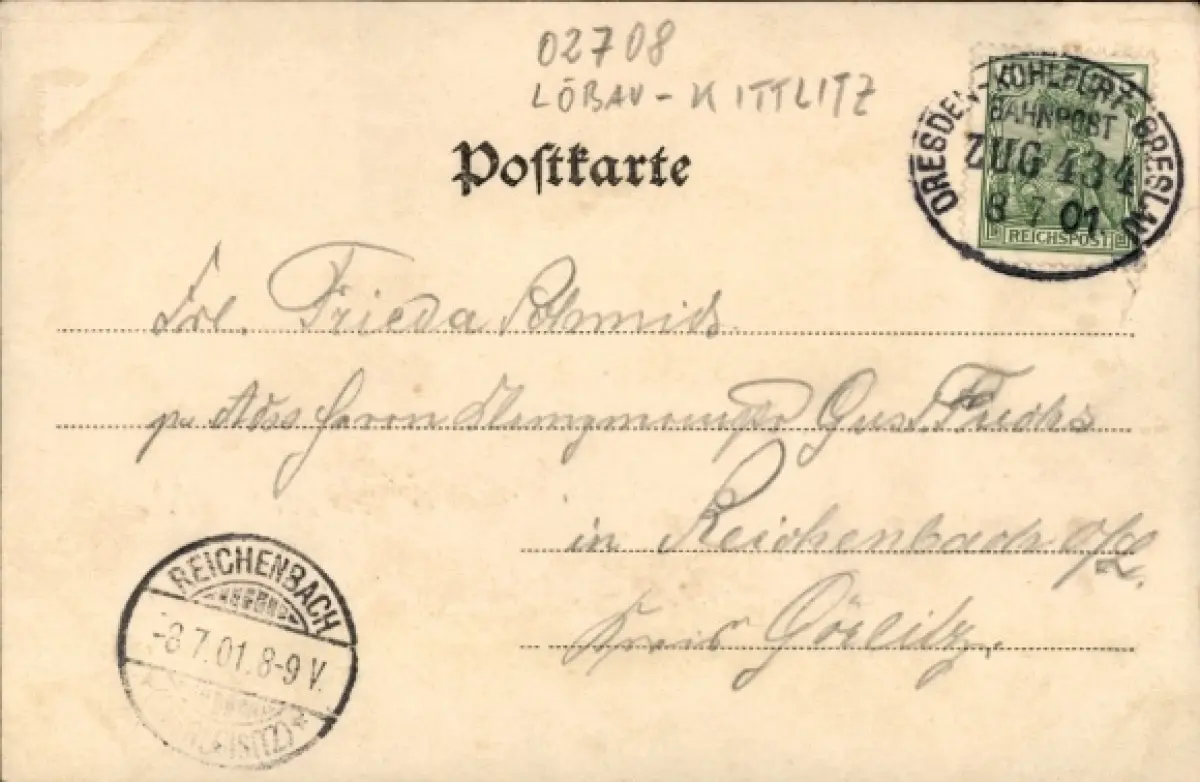 02708
LÖBAU - KITTLITZ
Poſtkarte
DRESDEN-KOHLFURT-BRESLAU
BAHNPOST
ZUG 434
8 7 01.
REICHSPOST
Frl. Frieda Schmidt
Herrn Gust. Fuchs
in Reichenbach O/L.
Kreis Görlitz.
REICHENBACH
-8.7.01.8-9 V.